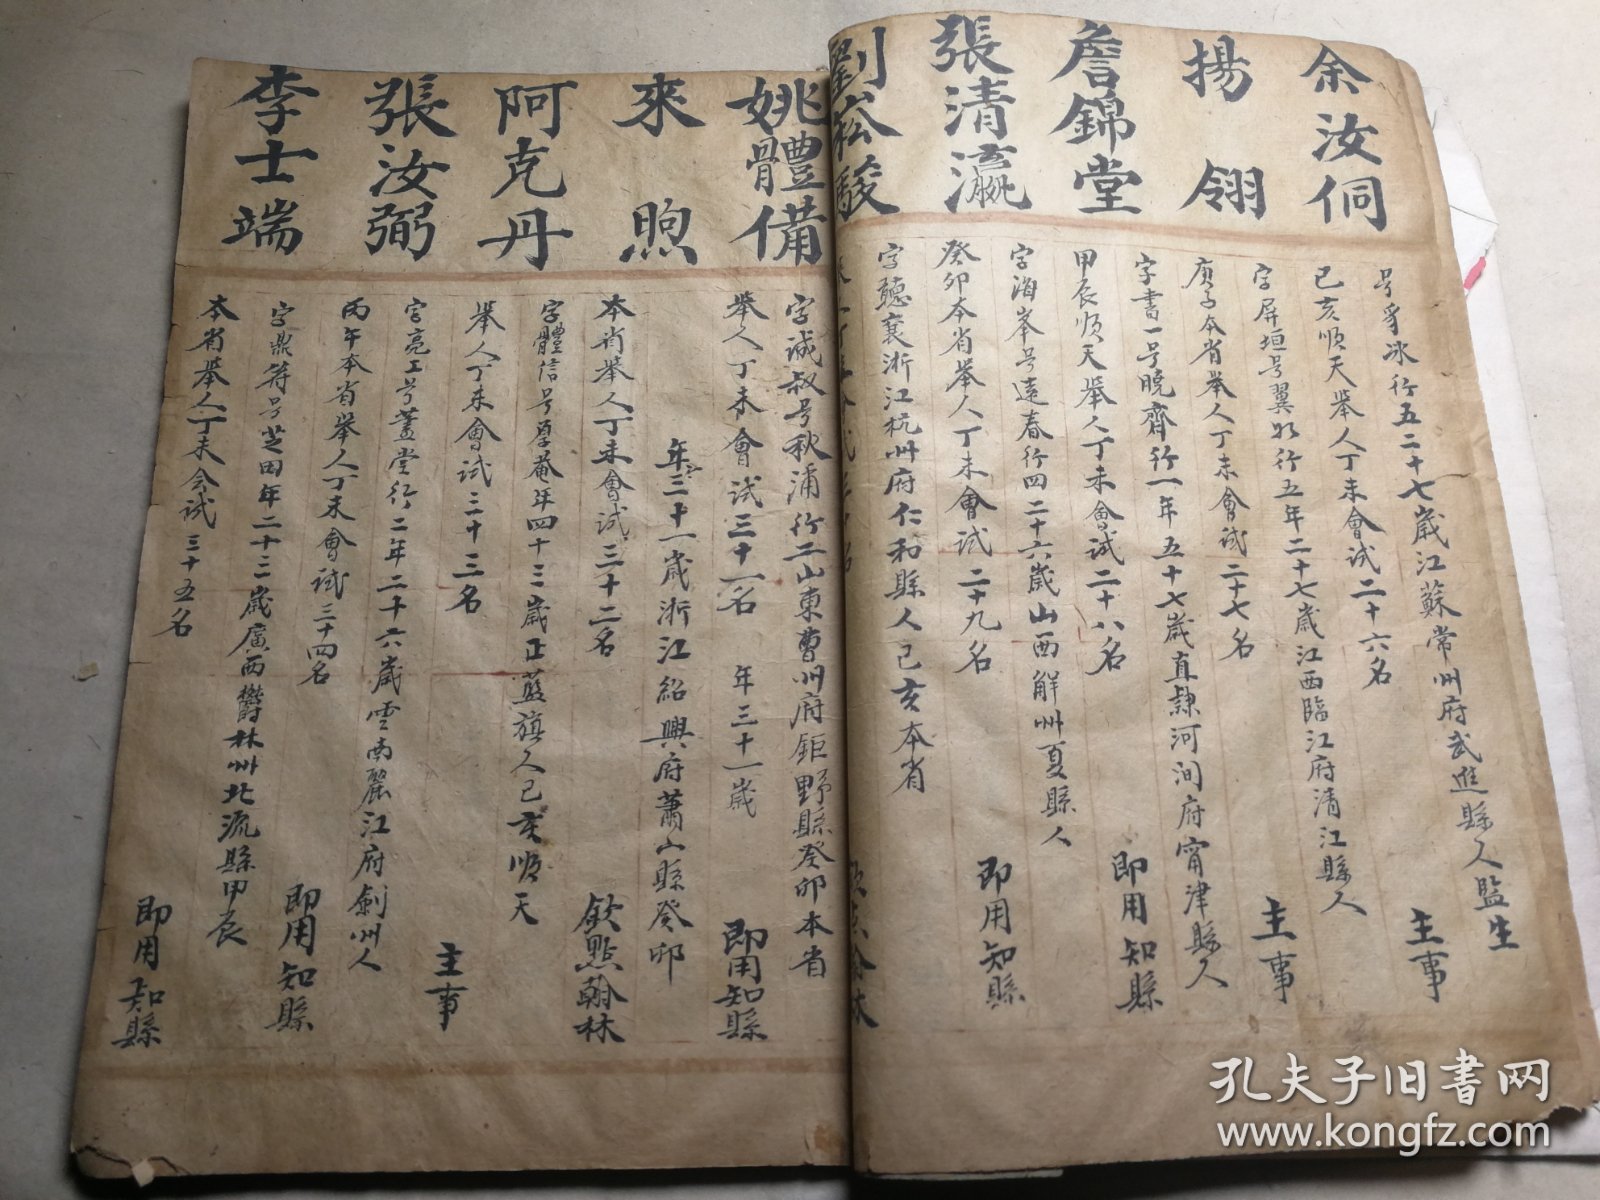 余汝侗
号豸冰行五二十七歲江蘇常州府武進縣人監生
己亥順天舉人丁未會試二十六名
主事
揚翎
字屏垣号翼 行五年二十七歲江西臨江府清江縣人
庚子本省舉人丁未會試二十七名
主事
詹錦堂
字書一号曉齋行一年五十七歲直隸河间府甯津縣人
甲辰順天舉人丁未會試二十八名
即用知縣
張清瀛
字海峯号遠春行四二十六歲山西解州夏縣人
癸卯本省舉人丁未會試二十九名
即用知縣
劉崧駿
字聽襄浙江杭州府仁和縣人己亥本省
姚體備
字誠叔号秋浦行二山東曹州府鉅野縣癸卯本省
舉人丁未會試三十一名 年三十一歲
即用知縣
來煦
年三十一歲浙江紹興府蕭山縣癸卯
本省舉人丁未會試三十二名
欽點翰林
阿克丹
字體信号厚菴年四十三歲正藍旗人己亥順天
舉人丁未會試三十三名
主事
張汝弼
字亮工号蓋堂行二年二十六歲雲南麗江府劍州人
丙午本省舉人丁未會試三十四名
即用知縣
李士端
字鼎符号芝田年二十二歲廣西欝林州北流縣甲辰
本省舉人丁未会試三十五名
即用知縣
孔夫子旧书网
www.kongfz.com